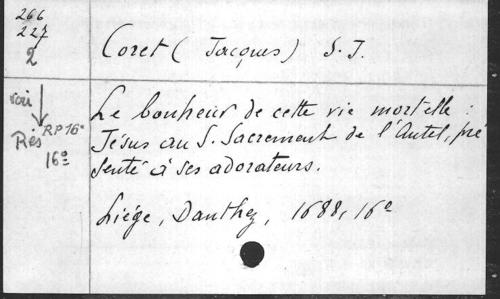 266
227
2
Coret (Jacques) S. J.
voir
Rés RP 16°
16°
Le bonheur de cette vie mortelle :
Jésus au S. Sacrement de l'Autel, pré
senté à ses adorateurs.
Liége, Danthez, 1688, 16°